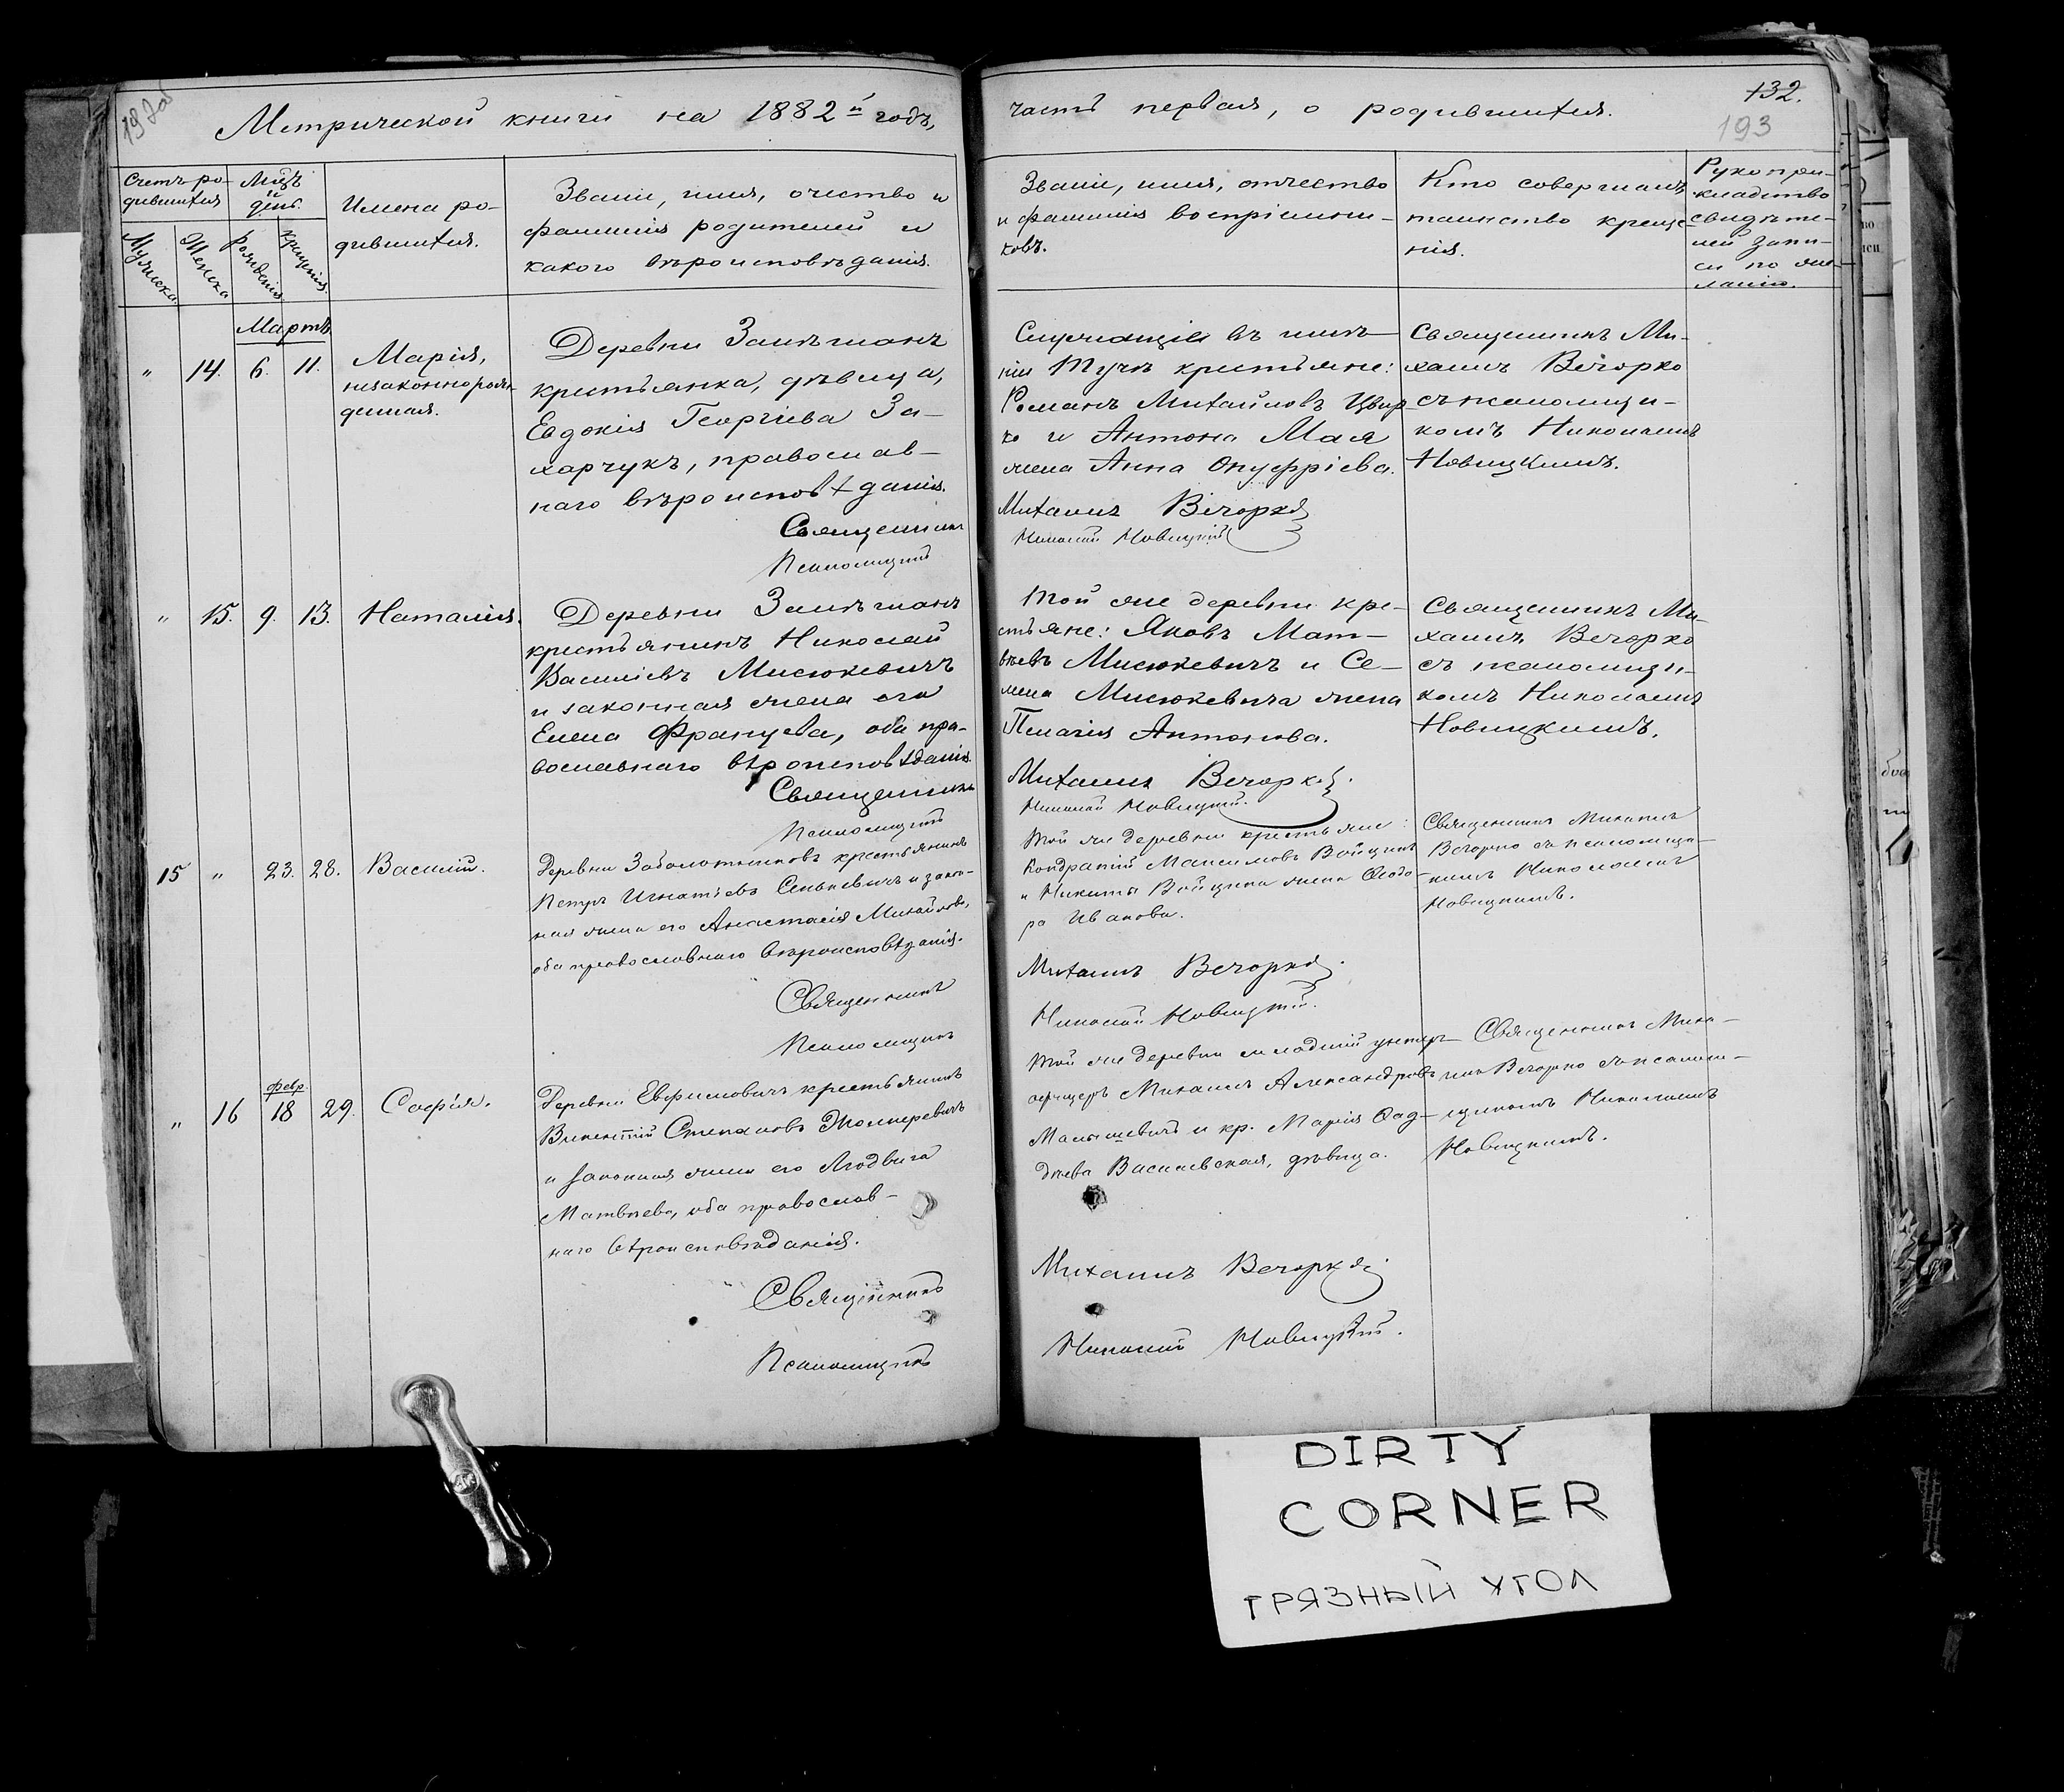 Метрической книги на 1882й годъ,
часть первая, о родившихся.
132.
193
Счетъ ро-
дившихся
Мѣцъ
и
день.
Мужеска.
Женска
Рожденія
Крещенія.
Имена ро-
дившихся.
Званіе, имя, очество и
фамилія родителей и
какого вѣроисповѣданія.
Званіе, имя, отчество
и фамилія воспріемни-
ковъ.
Кто совершалъ
таинство креще-
нія.
Рукопри-
кладство
свидѣте-
лей запи-
си по же-
ланію.
Мартъ
" 14. 6. 11.
Марія,
незаконнорож-
денная.
Деревни
крестьянка, дѣвица,
Евдокія Георгіева За-
харчукъ, православ-
наго вѣроисповѣданія.
Священникъ
Псаломщикъ
Служащіе въ имѣ-
ніи Тучѣ крестьяне:
Романъ Михайловъ Цвир-
ко и Антона Мая
жена Анна Онуфріева.
Михаилъ Вечорко
Николай Новицкій
Священникъ Ми-
хаилъ Вечорко
съ псаломщи-
комъ Николаемъ
Новицкимъ.
" 15. 9. 13. Наталія.
Деревни
крестьянинъ Николай
Василіевъ Мисюкевичъ
и законная жена его
Елена Францева, оба пра-
вославнаго вѣроисповѣданія
Священникъ
Псаломщикъ
Той же деревни кре-
стьяне: Яковъ Мат-
вѣевъ Мисюкевичъ и Се-
мена Мисюкевича жена
Пелагія Антонова.
Михаилъ Вечорко.
Николай Новицкій.
Священникъ Ми-
хаилъ Вечорко
съ псаломщи-
комъ Николаемъ
Новицкимъ.
15 " 23. 28. Василій.
Деревни Заболотниковъ крестьянинъ
Петръ Игнатьевъ Сенькевичъ и закон-
ная жена его Анастасія Михайлова,
оба православнаго вѣроисповѣданія.
Священникъ
Псаломщикъ
Той же деревни крестьяне:
Кондратій Максимовъ Войцикъ
и Никиты Войцика жена Ѳеодо-
ра Иванова.
Михаилъ Вечорко.
Николай Новицкій.
Священникъ Михаилъ
Вечорко съ псаломщи-
комъ Николаемъ
Новицкимъ.
февр.
" 16 18 29. Софія.
Деревни Евфимовичъ крестьянинъ
Викентій Степановъ
и законная жена его Людвига
Матвѣева, оба православ-
наго вѣроисповѣданія.
Священникъ
Псаломщикъ
Той же деревни младшій унтеръ-
офицеръ Михаилъ Александровъ
Малышевичъ и кр. Марія Ѳад-
деева Василевская, дѣвица.
Михаилъ Вечорко.
Николай Новицкій.
Священникъ Миха-
илъ Вечорко съ псалом-
щикомъ Николаемъ
Новицкимъ.
DIRTY
CORNER
ГРЯЗНЫЙ УГОЛ